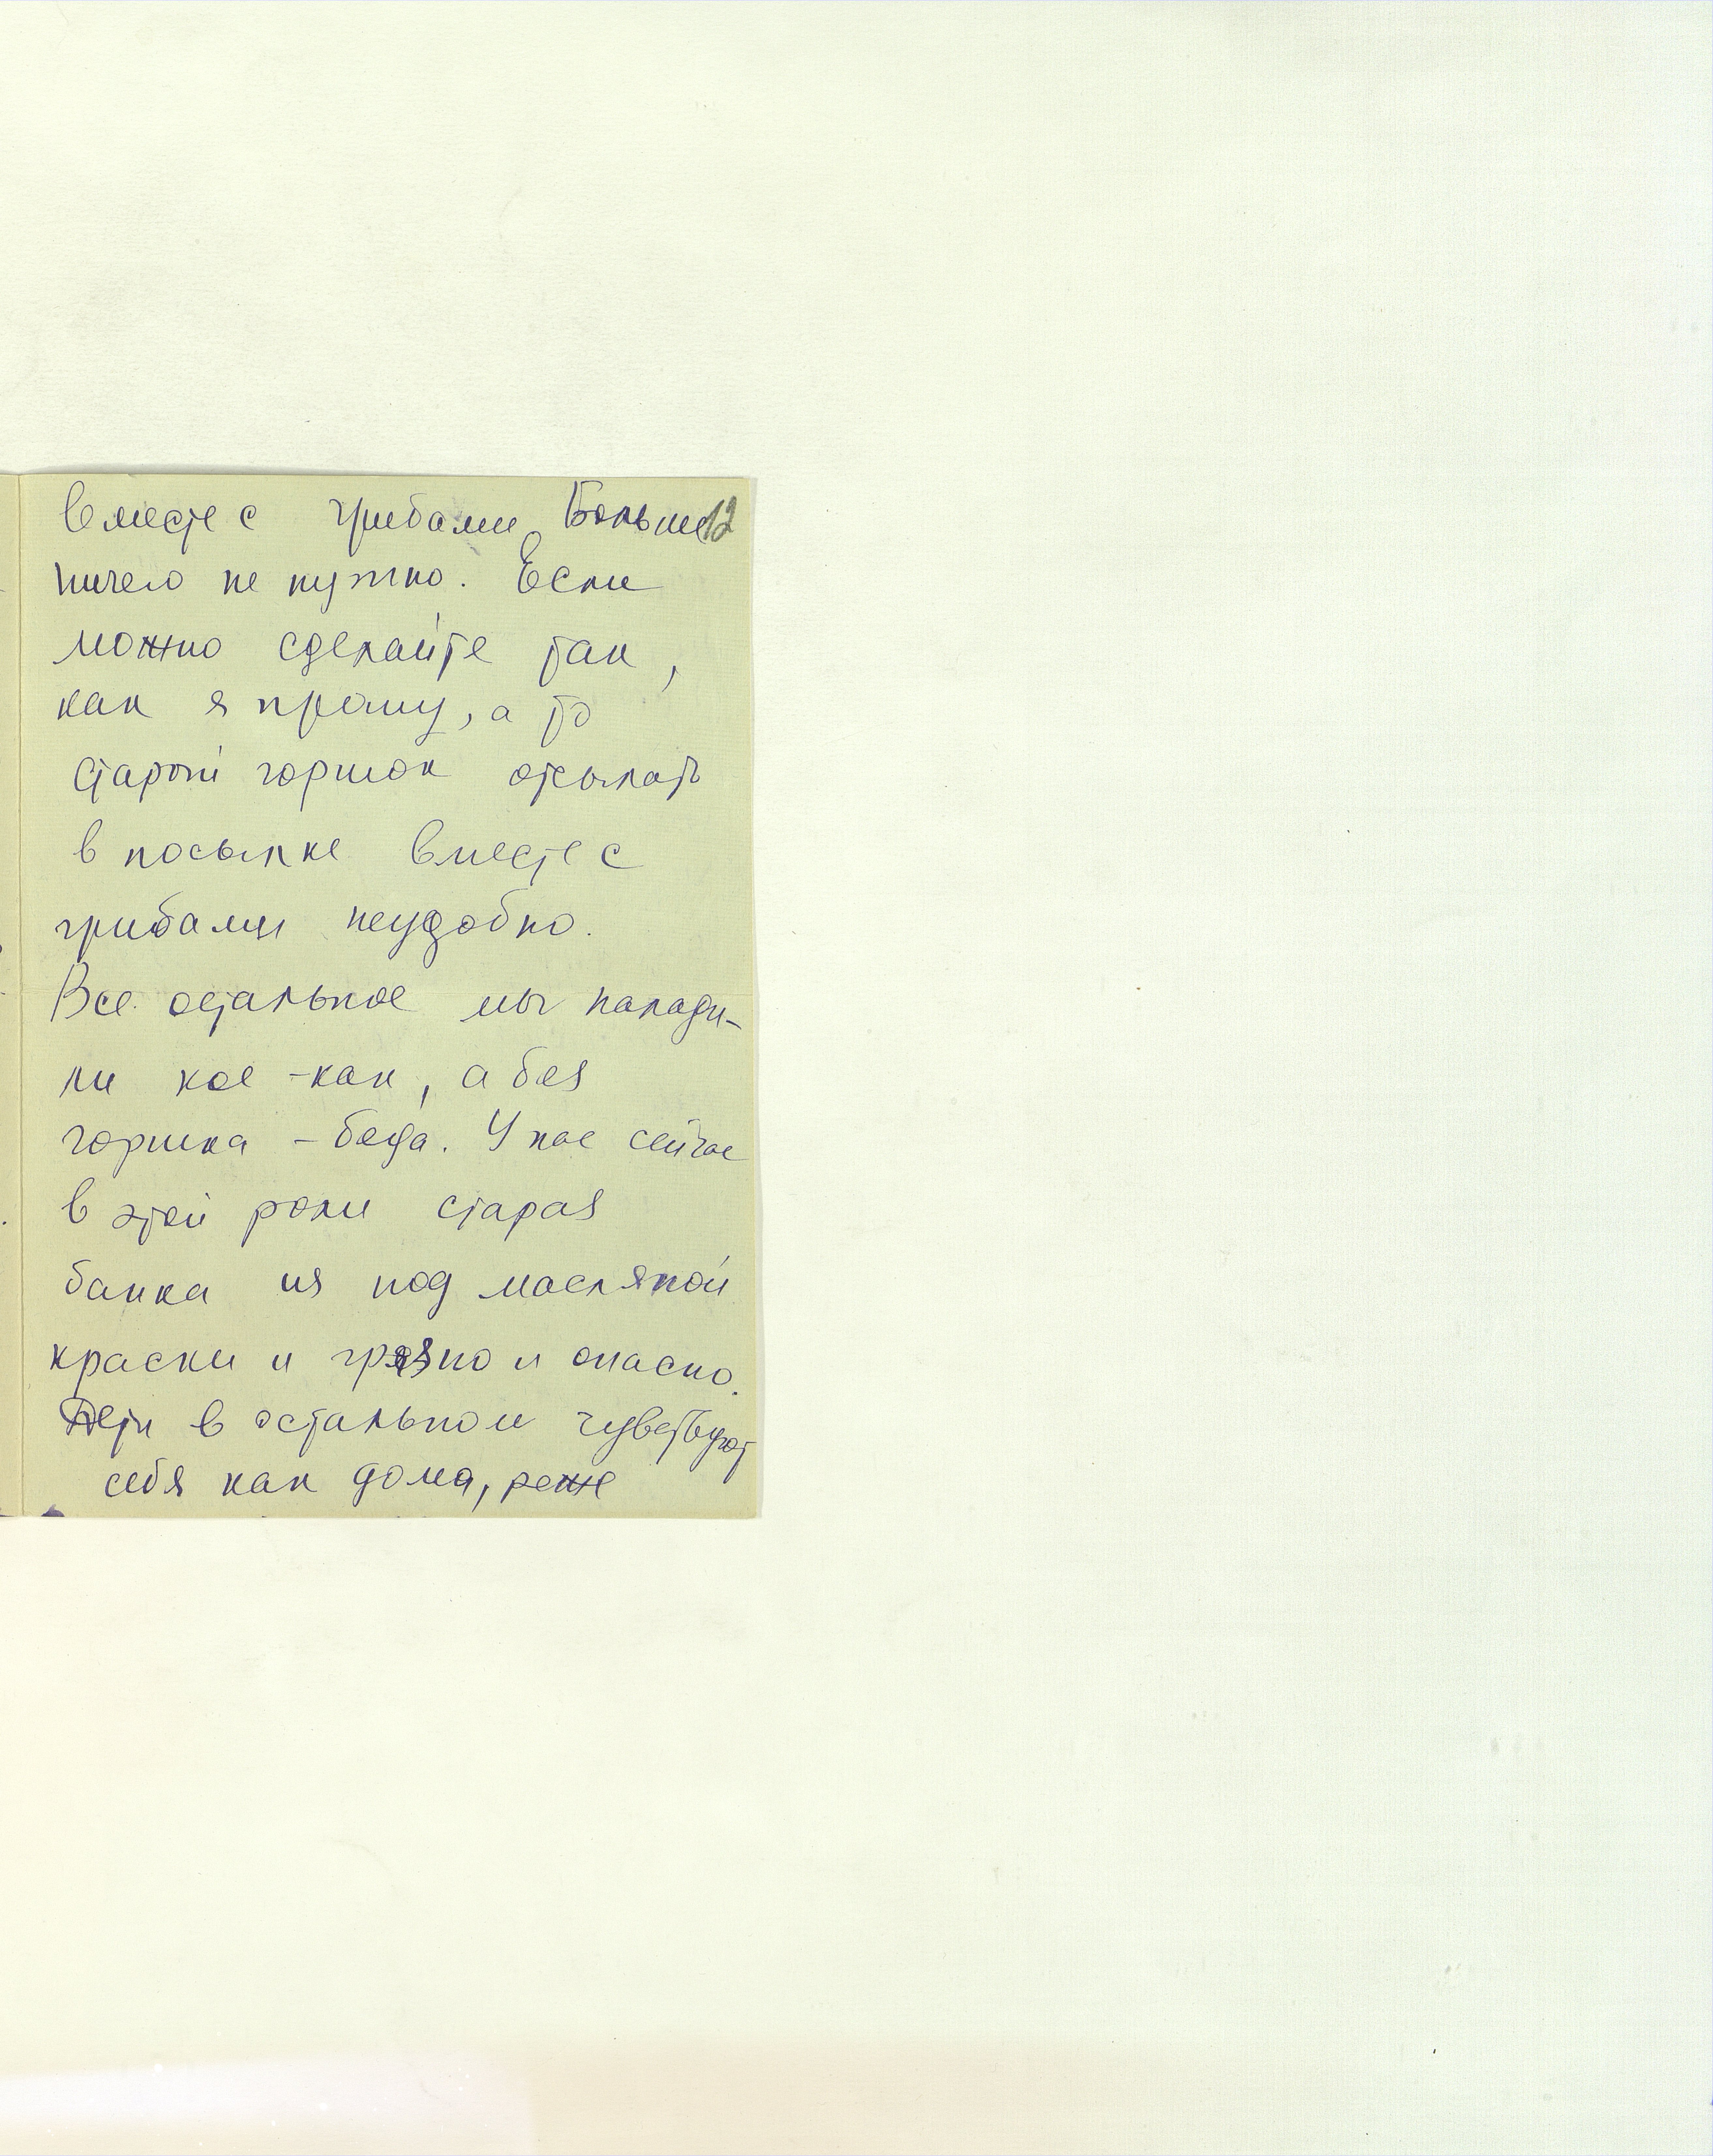 вместе с грибами. Больше 12
ничего не нужно. Если
можно сделайте так,
как я прошу, а то
старый горшок отсылать
в посылке вместе с
грибами неудобно.
Все остальное мы налади-
ли кое-как, а без
горшка - беда. У нас сейчас
в этой роли старая
банка из под масляной
краски и грязно и опасно.
Дети в остальном чувствуют
себя как дома, реже